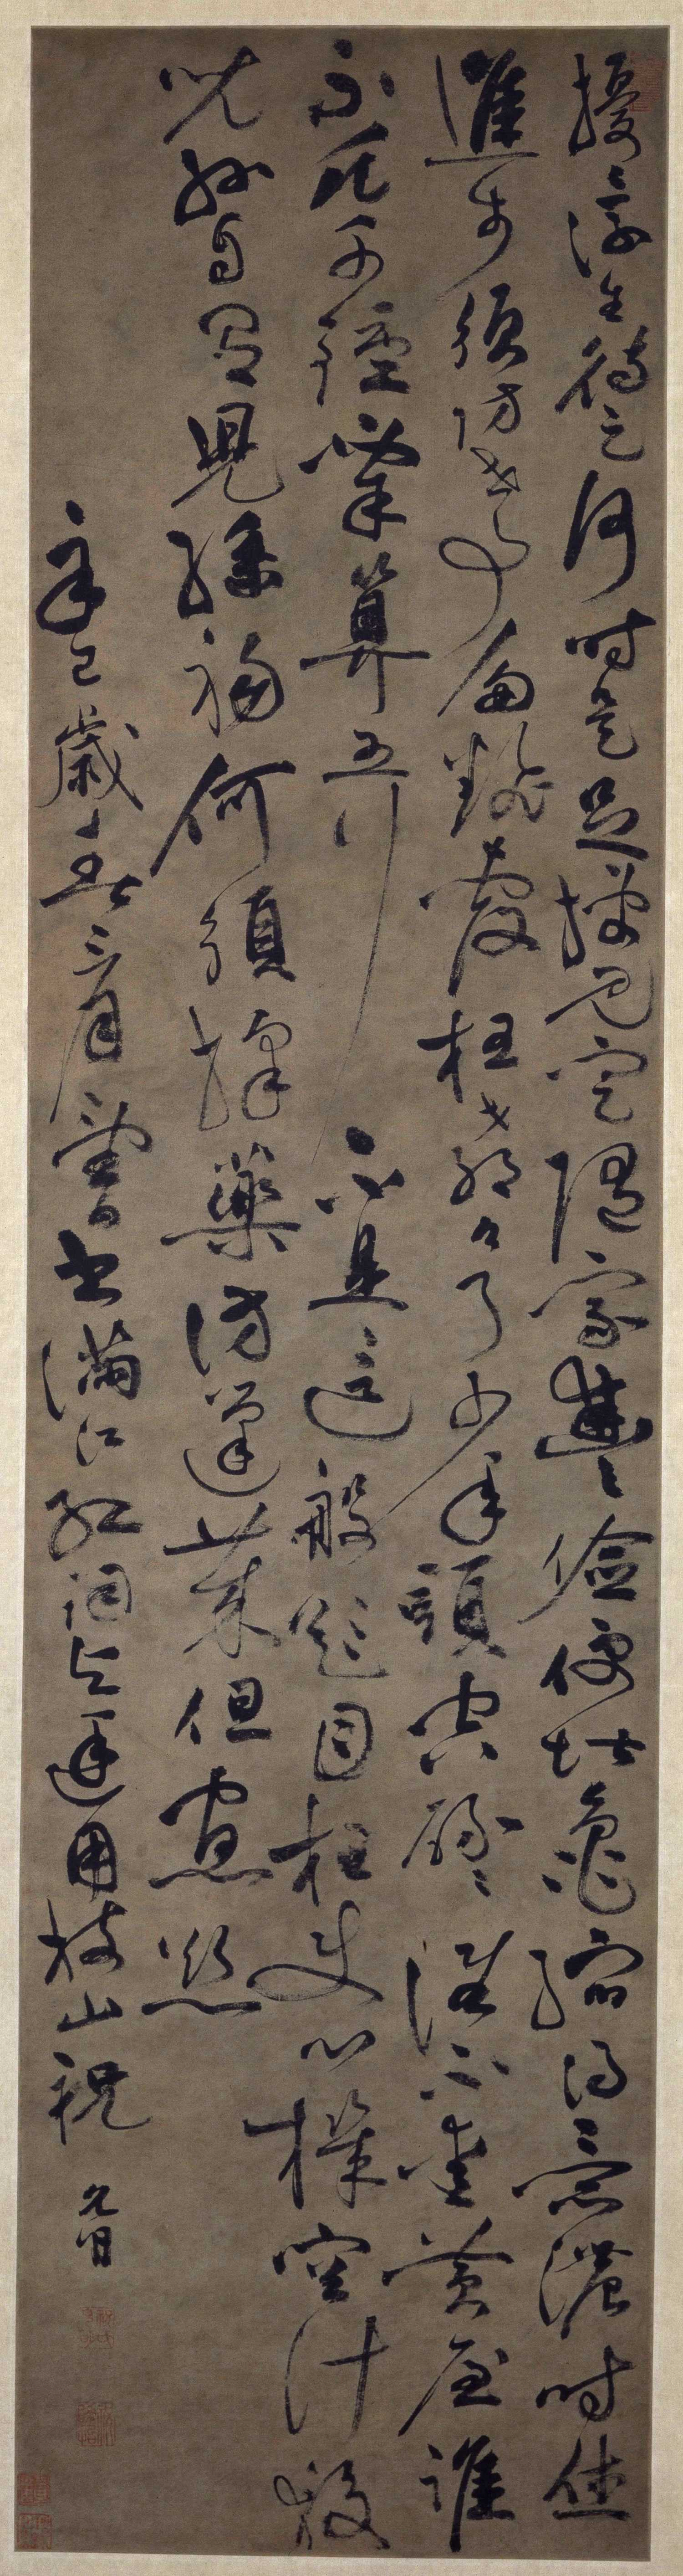 擾擾浮生待足何時是足據見定隨家豐儉便堪龜縮得意濃時休
進步須防世事多翻覆枉教人白了少年頭空碌碌誰不愛黃屋誰
不羨千鍾粟算五行不是這般題目枉使心機空計較
兒孫自有兒孫福何須採藥訪蓬萊但寡慾
辛巳歲春三月書滿江紅詞逢用枝山祝允明